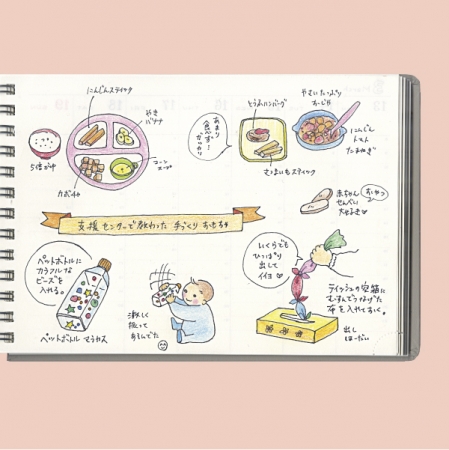 にんじんスティック
やき
バナナ
5倍がゆ
コーン
スープ
カボチャ
あまり
食べず…
ガッカリ
とうふハンバーグ
やさいたっぷり
おじや
にんじん
トマト
たまねぎ
さつまいもスティック
赤ちゃん
せんべい
大好き
おやつ
支援センターで教わった手づくりおもちゃ
ペットボトルに
カラフルな
ビーズを
入れる。
ペットボトルマラカス
激しく
振って
あそんでた
いくらでも
ひっぱり
出して
イイヨ
ティッシュの空箱に
むすんでつなげた
布を入れておく。
出し
ほーだい